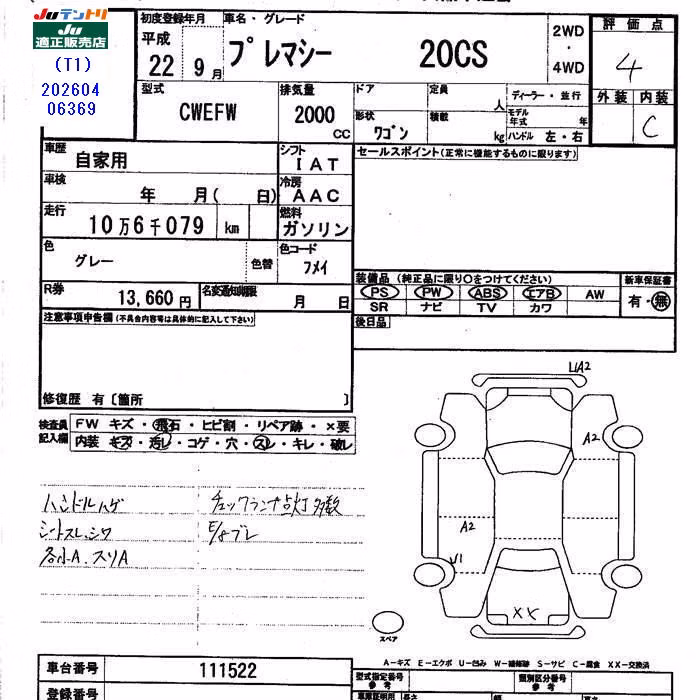 Juテントリ
Ju
適正販売店
(T1)
202604
06369
初度登録年月
平成
22 9 月
車名・グレード
プレマシー 20CS
2WD
・
4WD
評価点
4
外装 内装
C
型式
CWEFW
排気量
2000
CC
ドア
定員
人
ディーラー・並行
形状
ワゴン
積載
kg
モデル
年式 年
ハンドル 左・右
車歴
自家用
シフト
IAT
セールスポイント(正常に機能するものに限ります)
車検
年 月( 日)
冷房
AAC
走行
10万6千079 km
燃料
ガソリン
色
グレー
色替
色コード
フメイ
R券
13,660円
名変通知期限
月 日
装備品 (純正品に限り○をつけてください)
新車保証書
PS PW ABS エアB AW
SR ナビ TV カワ
有・無
後日品
注意事項申告欄(不具合内容等は具体的に記入して下さい)
修復歴 有〔箇所 〕
検査員
記入欄
FW キズ・飛石・ヒビ割・リペア跡・×要
内装 キズ・汚レ・コゲ・穴・スレ・キレ・破レ
ハンドルハゲ
シートスレ、シワ
各小A.スリA
チェックランプ点灯多数
E/gブレ
A2
A2
U1
XX
スペア
A-キズ E-エクボ U-凹み W-補修跡 S-サビ C-腐食 XX-交換済
車台番号
111522
型式指定番号
参考
類別区分番号
参考
登録番号
車庫証明用
参考
長さ
幅
高さ